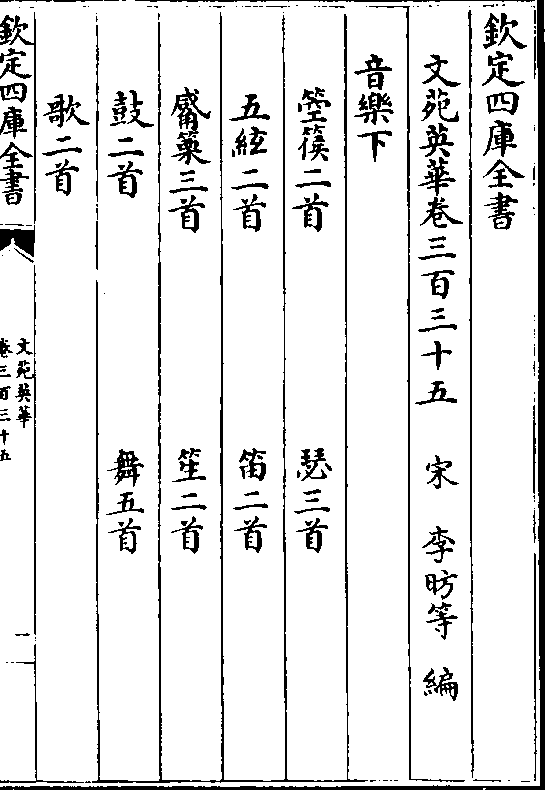 欽定四庫全書
文苑英華卷三百三十五　宋　李昉等　編
音樂下
箜篌二首　瑟三首
五絃二首　笛二首
觱篥三首　笙二首
鼓二首　舞五首
歌二首
欽定四庫全書
文苑英華
卷三百三十五
一